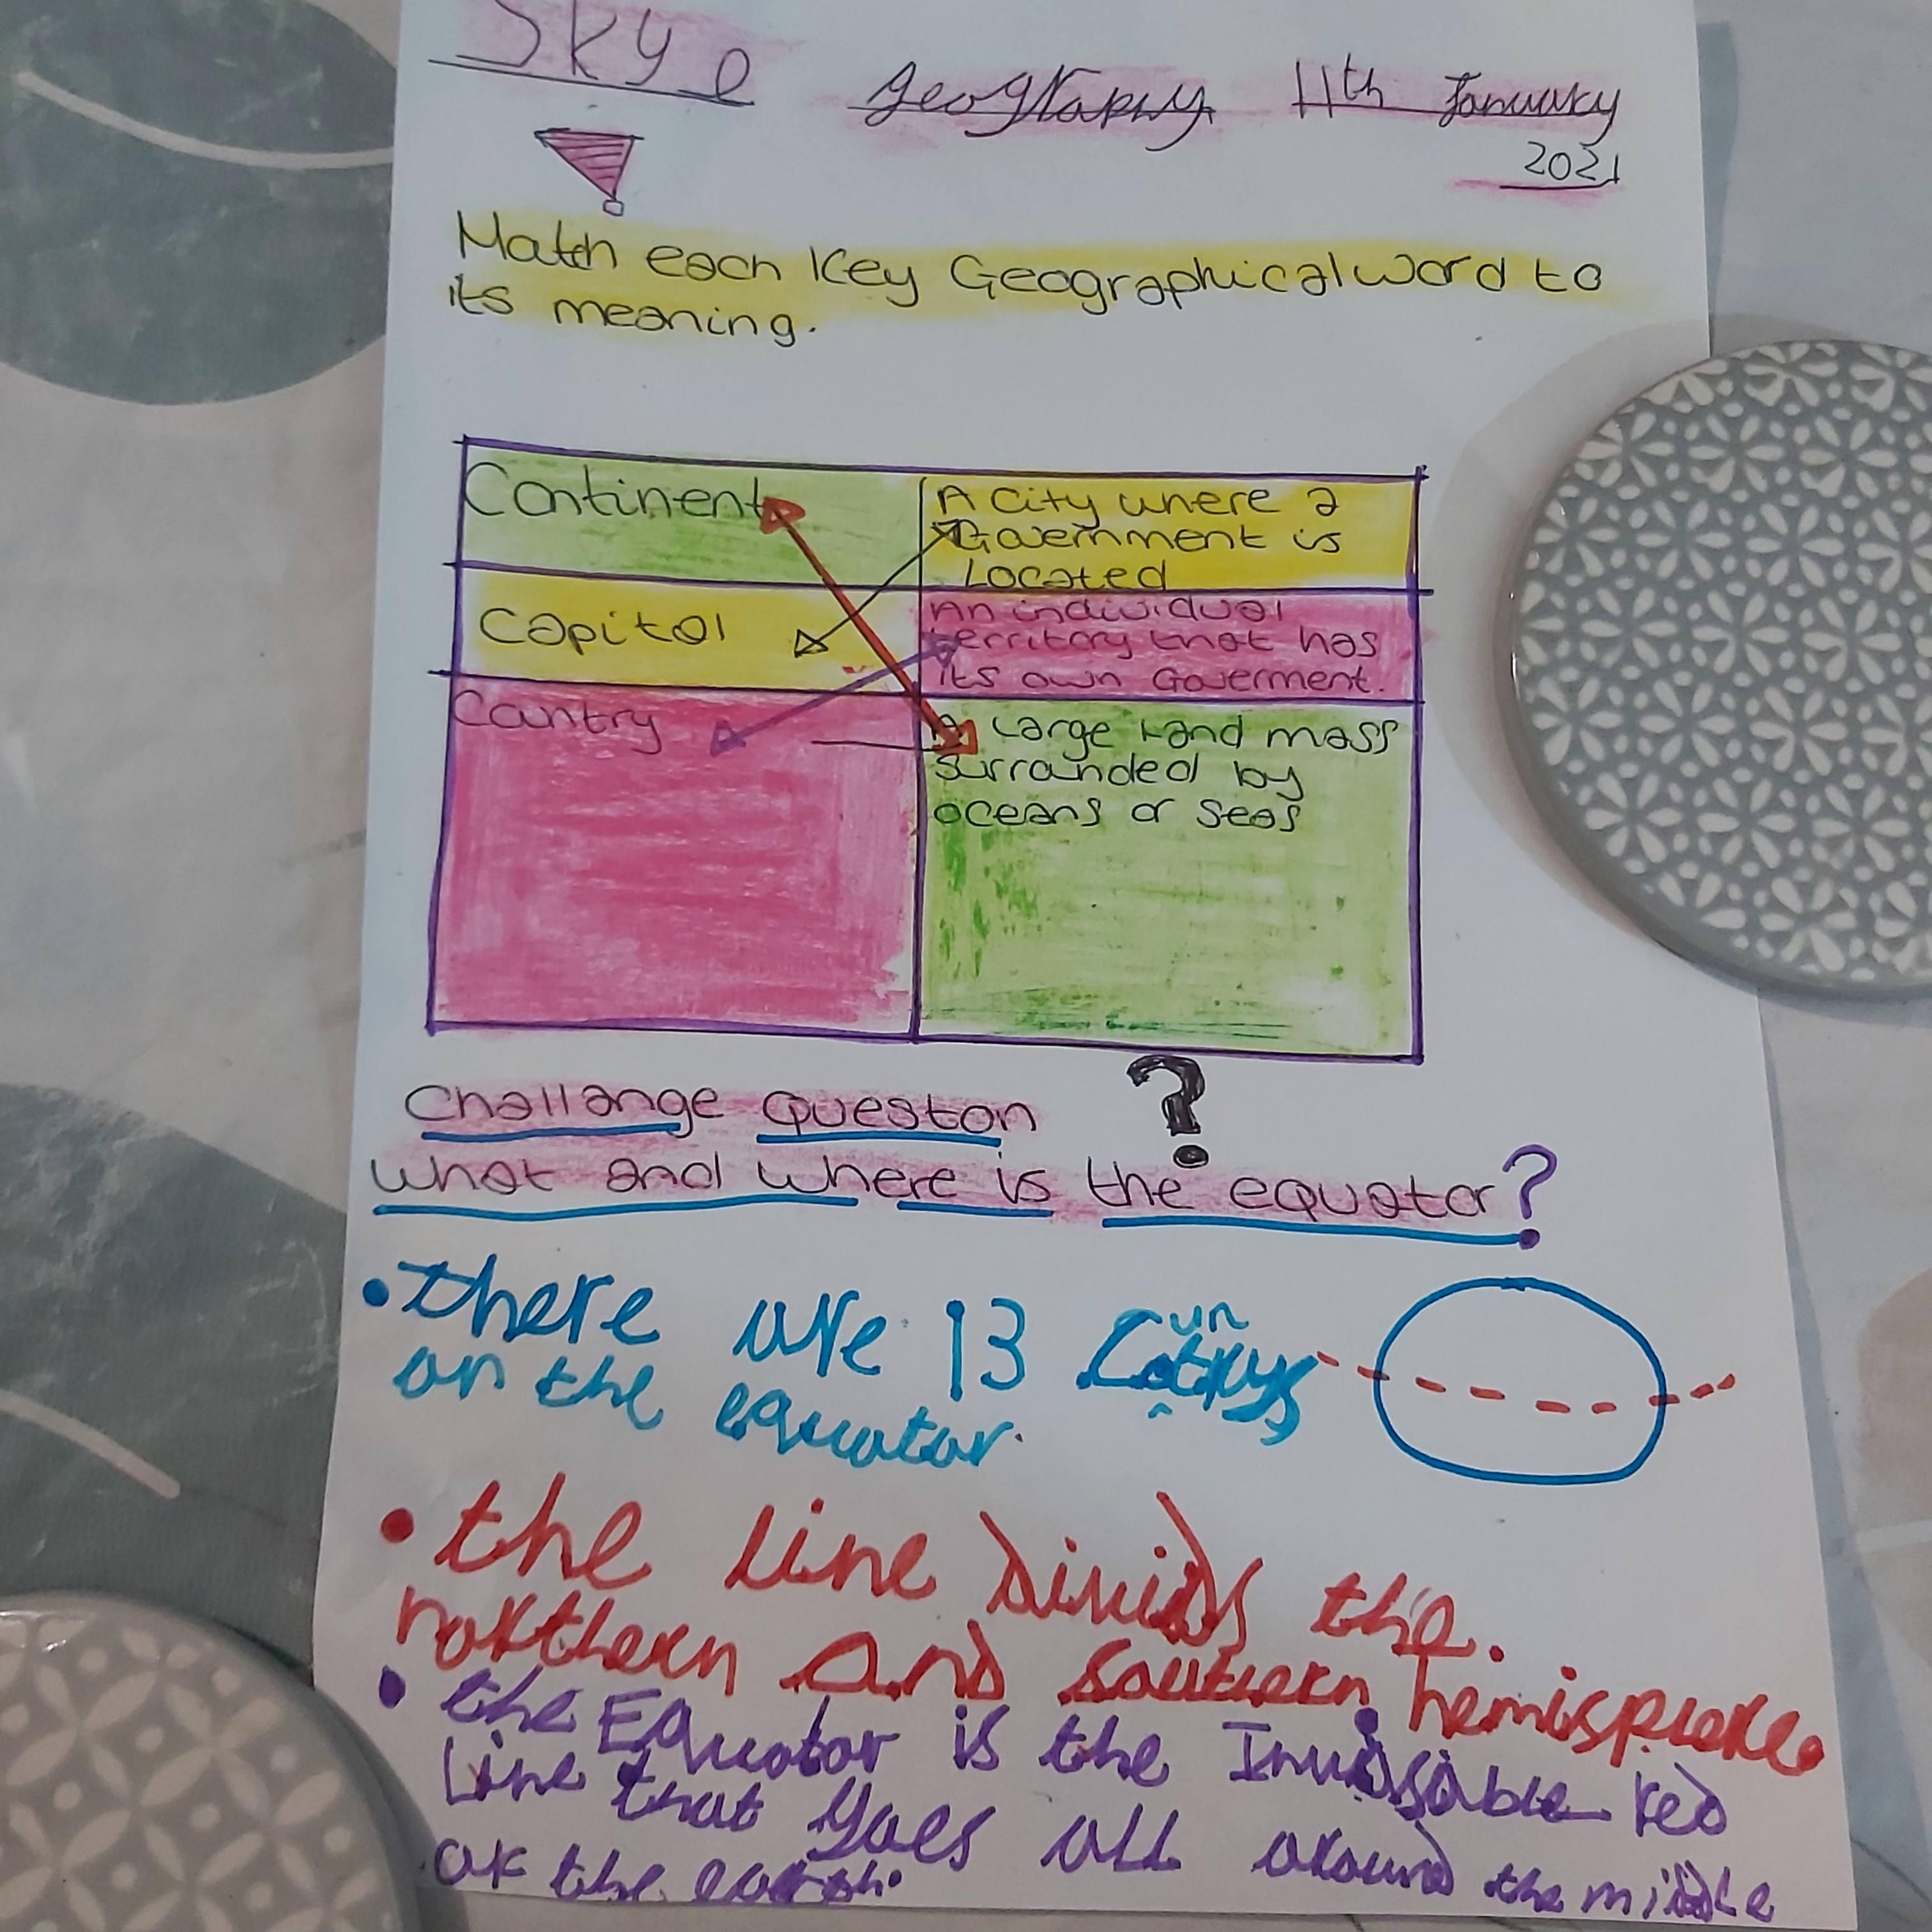 Skye
Geography 11th January
2021
Match each Key Geographical word to
its meaning.
Continent
A City where a
Government is
Located
Capital
An individual
territory that has
its own Goverment.
Country
A Large Land mass
surrounded by
oceans or seas
Challange queston
?
what and where is the equator?
• there are 13 Cuntrys
on the equator.
• the Line divids the
northern and Southern hemisphere.
• the Equator is the Invisable red
Line that goes all around the middle
of the earth.